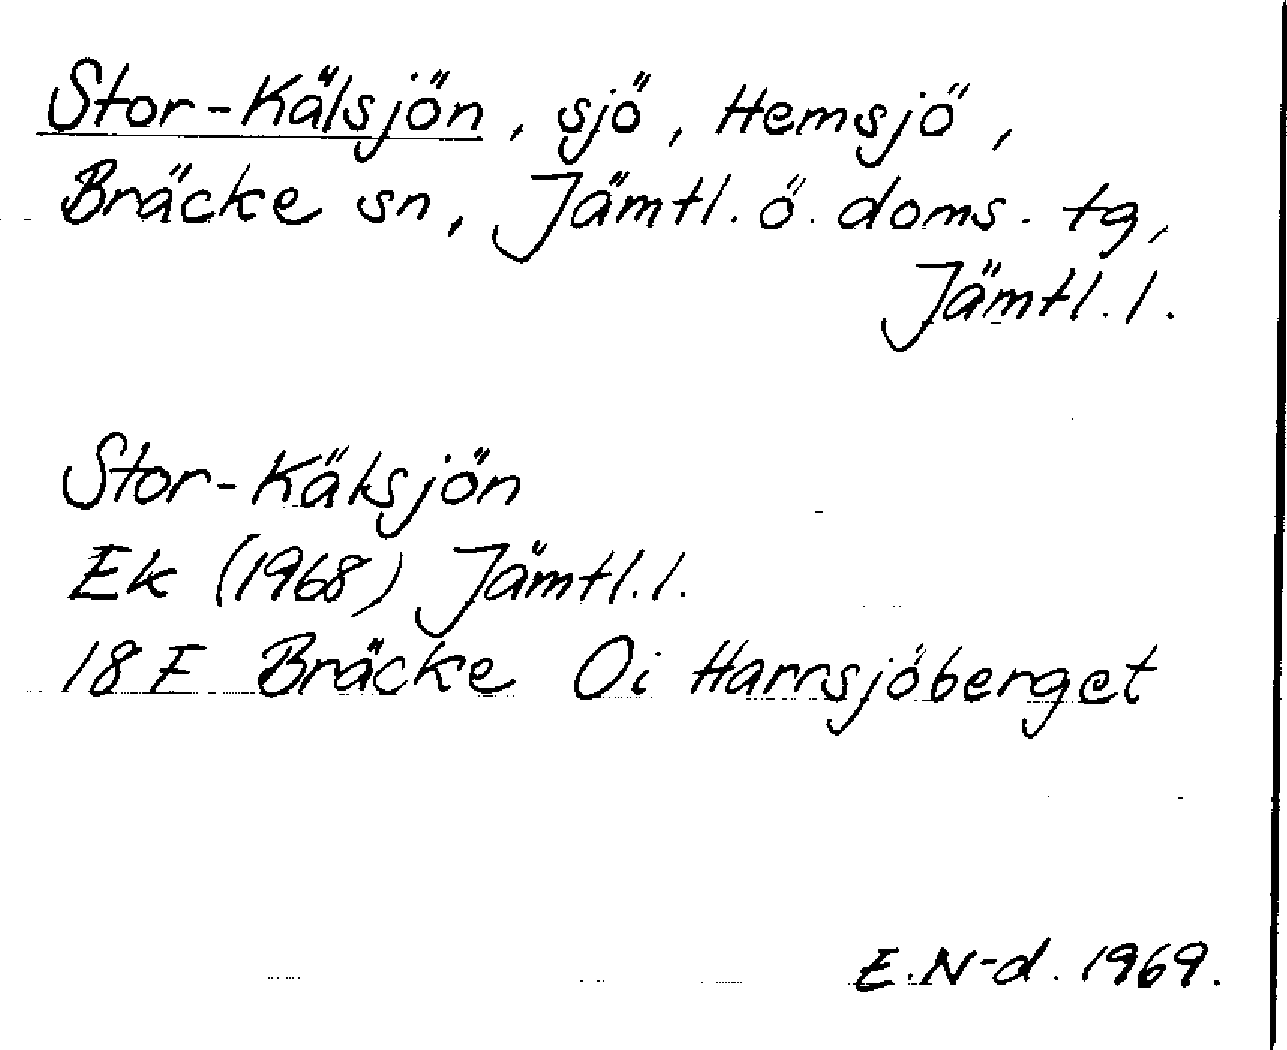 Stor-Kälsjön, sjö, Hemsjö,
Bräcke sn, Jämtl. ö. doms. tg,
Jämtl. l.
Stor-Kälsjön
Ek (1968) Jämtl. l.
18 F Bräcke Oi Harrsjöberget
E. N-d. 1969.